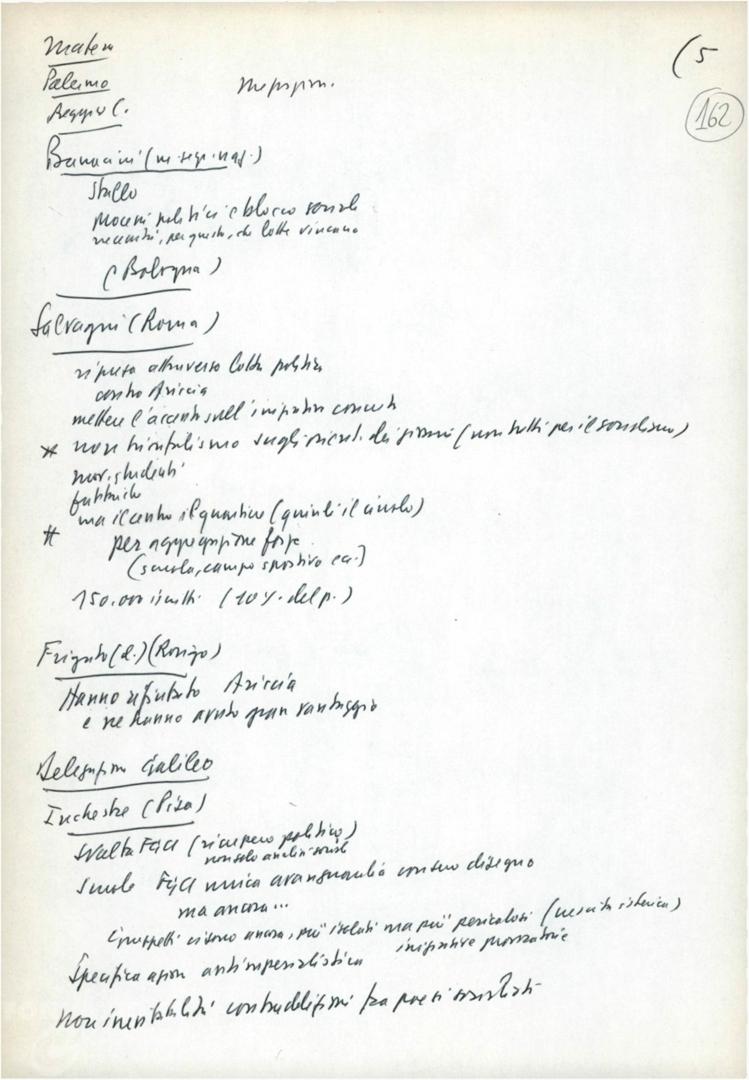 (5
162
Matera
Palermo
Reggio C.
(m. segr. naz.)
stallo
politici e blocco sociale
necessità, per questo, che lotte vincano
(Bologna)
Salvagni (Roma)
ripresa attraverso lotta politica
contro Ariccia
mettere l'accento sull'iniziativa concreta
* non trionfalismo sugli orient. dei giovani (non tutti per il socialismo)
mov. studenti
fabbriche
ma il centro il quartiere (quindi il circolo)
# per aggregazione forze
(scuola, campo sportivo ecc.)
150.000 iscritti (10% del p.)
(d.) (Rovigo)
Hanno rifiutato Ariccia
e ne hanno avuto gran vantaggio
Delegazione Galileo
(Pisa)
svolta FGCI (recupero politico)
non solo analisi sociale
Scuole FGCI unica avanguardia con suo disegno
ma ancora...
i gruppetti ci sono ancora, più isolati ma più pericolosi (
iniziative provocatorie
Specifica azione antimperialistica
non inevitabilità contraddizioni tra paesi socialisti